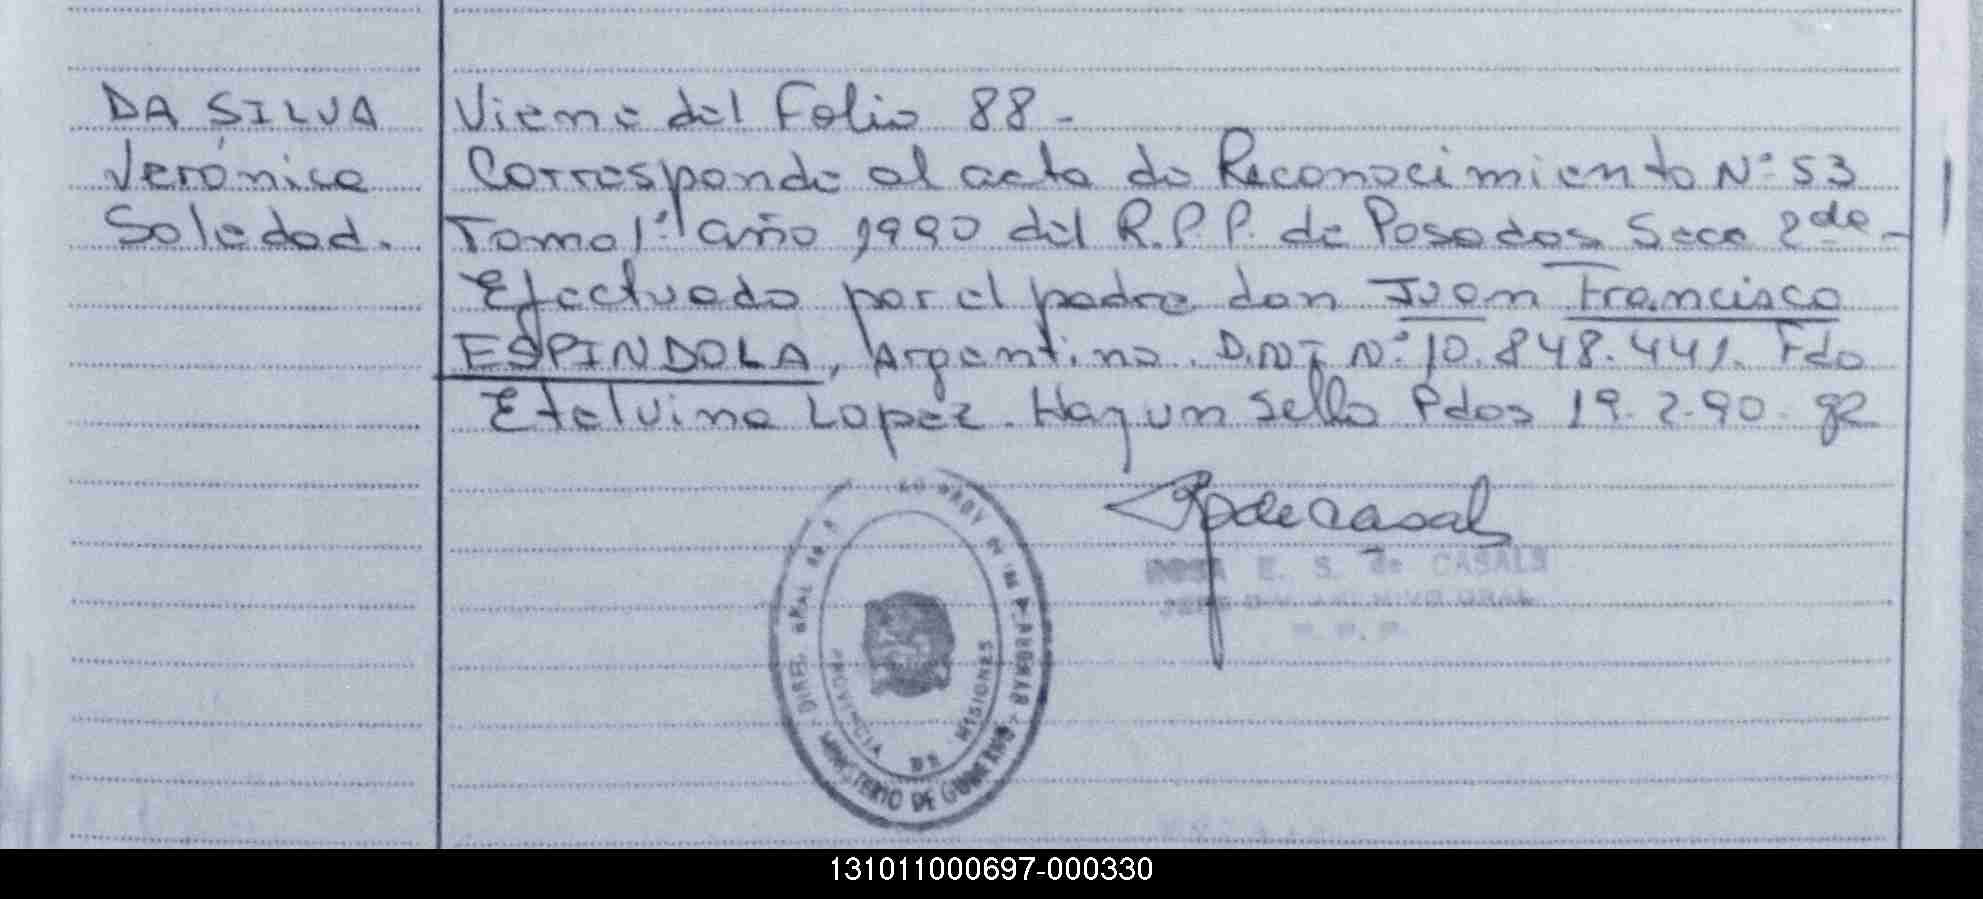 DA SILVA
Verónica
Soledad.
Viene del Folio 88 -
Corresponde al acta de Reconocimiento Nº 53
Tomo 1º año 1990 del R.P.P. de Posadas Secc 2da -
Efectuado por el padre don Juan Francisco
ESPINDOLA, Argentino. D.N.I Nº 10.848.441. Fdo
Etelvina Lopez. Hay un sello Pdas 19.2.90.
RpdeCasals
ROSA E. S. de CASALS
JEFE DIV ARCHIVO GRAL
R. P. P.
PROVINCIA DE MISIONES
MINISTERIO DE GOBIERNO
131011000697-000330